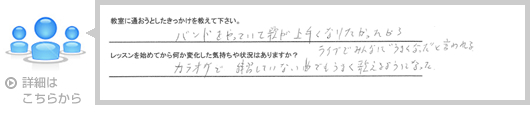 教室に通おうとしたきっかけを教えて下さい。
バンドをやっていて歌が上手くなりたかったから
ライブでみんなに"うまくなった"と言われる
レッスンを始めてから何か変化した気持ちや状況はありますか？
カラオケで 練習していない曲でもうまく歌えるようになった
詳細は
こちらから